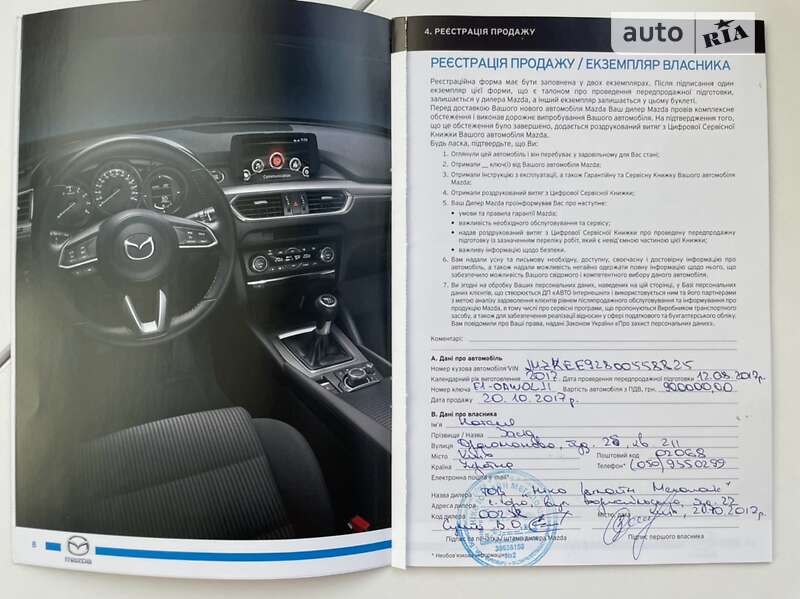 auto RIA
4. РЕЄСТРАЦІЯ ПРОДАЖУ
РЕЄСТРАЦІЯ ПРОДАЖУ / ЕКЗЕМПЛЯР ВЛАСНИКА
Реєстраційна форма має бути заповнена у двох екземплярах. Після підписання один
екземпляр цієї форми, що є талоном про проведення передпродажної підготовки,
залишається у дилера Mazda, а інший екземпляр залишається у цьому буклеті.
Перед доставкою Вашого нового автомобіля Mazda Ваш дилер Mazda провів комплексне
обстеження і виконав дорожнє випробування Вашого автомобіля. На підтвердження того,
що це обстеження було завершено, додається роздрукований витяг з Цифрової Сервісної
Книжки Вашого автомобіля Mazda.
Будь ласка, підтвердьте, що Ви:
1. Оглянули цей автомобіль і він перебуває у задовільному для Вас стані;
2. Отримали __ ключ(і) від Вашого автомобіля Mazda;
3. Отримали Інструкцію з експлуатації, а також Гарантійну та Сервісну Книжку Вашого автомобіля
Mazda;
4. Отримали роздрукований витяг з Цифрової Сервісної Книжки;
5. Ваш Дилер Mazda проінформував Вас про наступне:
• умови та правила гарантії Mazda;
• важливість необхідного обслуговування та сервісу;
• надав роздрукований витяг з Цифрової Сервісної Книжки про проведену передпродажну
підготовку із зазначенням переліку робіт, який є невід'ємною частиною цієї Книжки;
• важливу інформацію щодо безпеки.
6. Вам надали усну та письмову необхідну, доступну, своєчасну і достовірну інформацію про
автомобіль, а також надали можливість негайно одержати повну інформацію щодо нього, що
забезпечило можливість Вашого свідомого і компетентного вибору даного автомобіля.
7. Ви згодні на обробку Ваших персональних даних, наведених на цій сторінці, у Базі персональних
даних клієнтів, що створюється ДП «АВТО Інтернешнл» і використовується ним та його партнерами
з метою аналізу задоволення клієнтів рівнем післяпродажного обслуговування та інформування про
продукцію Mazda, в тому числі про сервісні програми, що пропонуються Виробником транспортного
засобу, а також для забезпечення реалізації відносин у сфері податкового та бухгалтерського обліку.
Вам повідомили про Ваші права, надані Законом України «Про захист персональних даних».
Коментарі:
А. Дані про автомобіль
Номер кузова автомобіля VIN JMZKEE92800558825
Календарний рік виготовлення 2017 Дата проведення передпродажної підготовки 12.08.2017р.
Номер ключа Вартість автомобіля з ПДВ, грн. 900000,00
Дата продажу 20.10.2017р.
В. Дані про власника
Ім'я
Прізвище / Назва
Вулиця
Місто Київ Поштовий код 02068
Країна Україна Телефон* (050) 9550299
Електронна пошта / e-mail*
Назва дилера ТОВ
Адреса дилера
Код дилера Місто, дата Київ, 20.10.2017р.
Підпис та печатка / штамп дилера Mazda Підпис першого власника
* Необов'язкова інформація
8
mazda
Communication